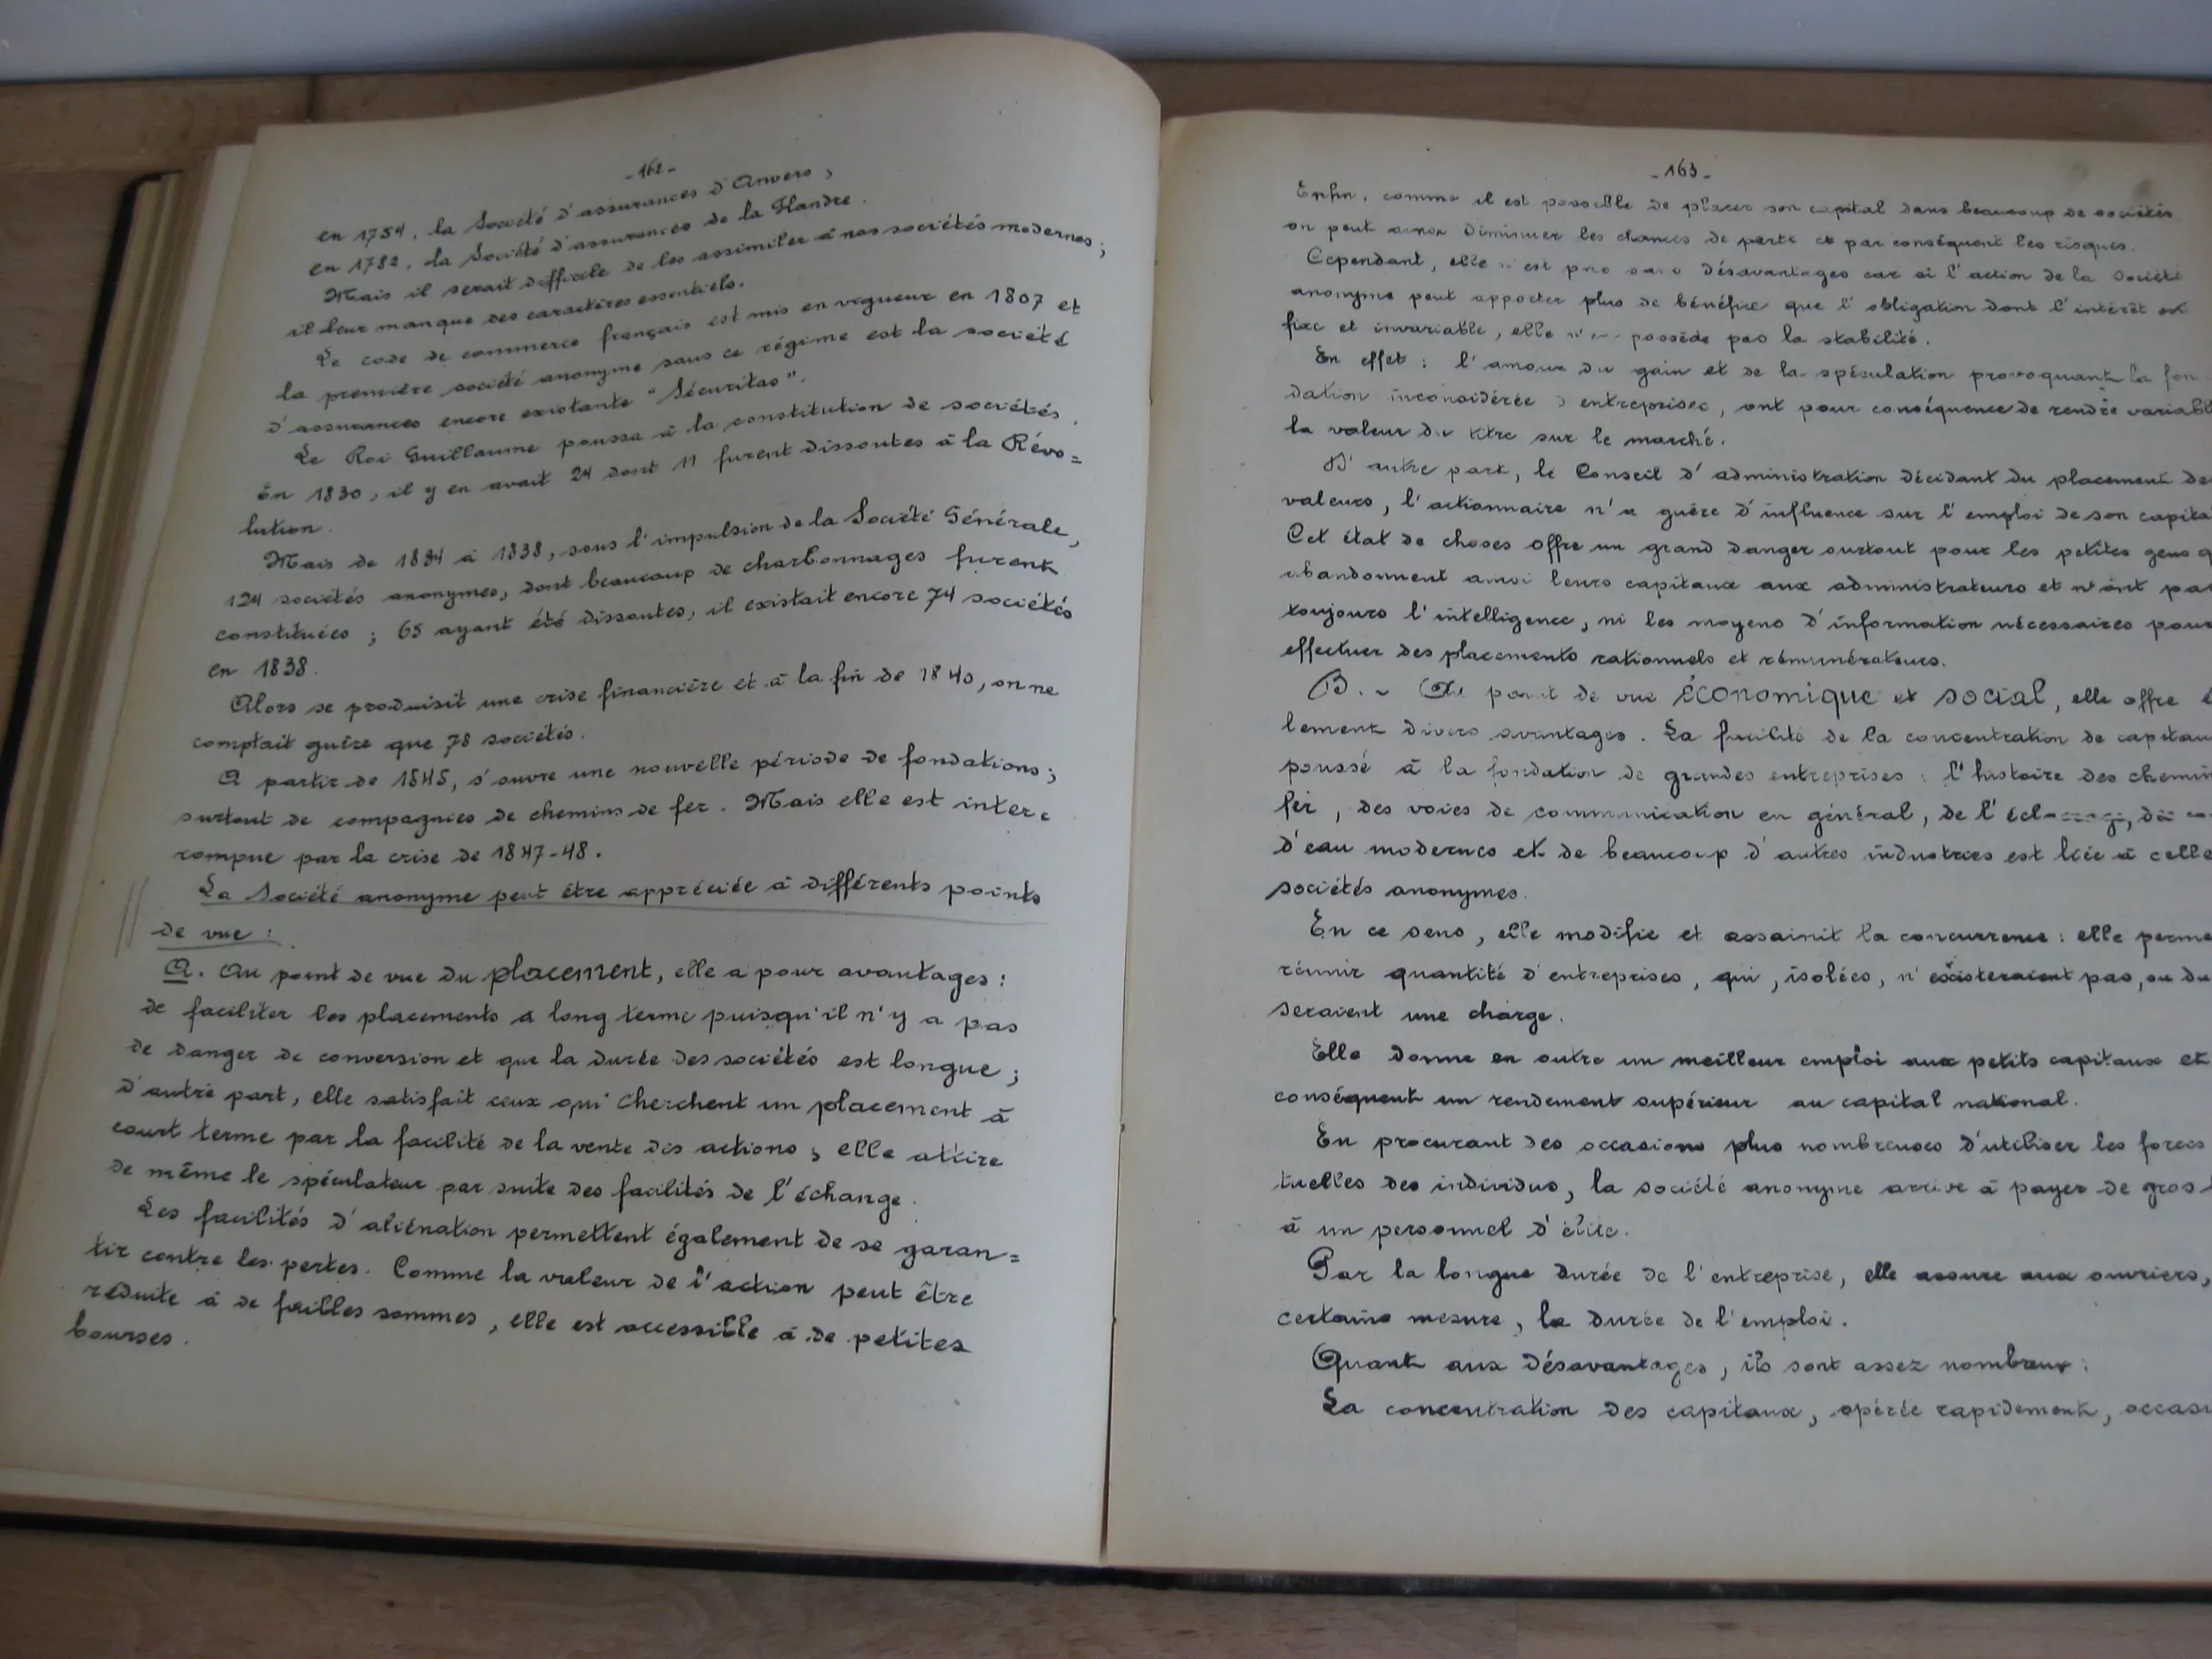 - 162 -
en 1754, la Société d'assurances d'Anvers,
en 1782, la Société d'assurances de la Flandre.
Mais il serait difficile de les assimiler à nos sociétés modernes;
il leur manque des caractères essentiels.
Le code de commerce français est mis en vigueur en 1807 et
la première société anonyme sous ce régime est la société
d'assurances encore existante "Sécuritas".
Le Roi Guillaume poussa à la constitution de sociétés.
En 1830, il y en avait 24 dont 11 furent dissoutes à la Révo=
lution.
Mais de 1834 à 1838, sous l'impulsion de la Société Générale,
124 sociétés anonymes, dont beaucoup de charbonnages furent
constituées ; 65 ayant été dissoutes, il existait encore 74 sociétés
en 1838.
Alors se produisit une crise financière et à la fin de 1840, on ne
comptait guère que 78 sociétés.
A partir de 1845, s'ouvre une nouvelle période de fondations;
surtout de compagnies de chemins de fer. Mais elle est inter=
rompue par la crise de 1847-48.
La Société anonyme peut être appréciée à différents points
de vue :
A. Au point de vue du placement, elle a pour avantages :
de faciliter les placements a long terme puisqu'il n'y a pas
de danger de conversion et que la durée des sociétés est longue ;
d'autre part, elle satisfait ceux qui cherchent un placement à
court terme par la facilité de la vente des actions ; elle attire
de même le spéculateur par suite des facilités de l'échange.
Les facilités d'aliénation permettent également de se garan=
tir contre les pertes. Comme la valeur de l'action peut être
réduite à de faibles sommes, elle est accessible à de petites
bourses.
- 163 -
Enfin, comme il est possible de placer son capital dans beaucoup de sociétés
on peut ainsi diminuer les chances de perte et par conséquent les risques.
Cependant, elle n'est pas sans désavantages car si l'action de la société
anonyme peut apporter plus de bénéfice que l'obligation dont l'intérêt est
fixe et invariable, elle n'en possède pas la stabilité.
En effet : l'amour du gain et de la spéculation provoquant la fon
dation inconsidérée d'entreprises, ont pour conséquence de rendre variable
la valeur du titre sur le marché.
D'autre part, le Conseil d'administration décidant du placement de
valeurs, l'actionnaire n'a guère d'influence sur l'emploi de son capita
Cet état de choses offre un grand danger surtout pour les petites gens q
abandonnent ainsi leurs capitaux aux administrateurs et n'ont pas
toujours l'intelligence, ni les moyens d'information nécessaires pour
effectuer des placements rationnels et rémunérateurs.
B. - Au point de vue économique et social, elle offre é
lement divers avantages. La facilité de la concentration de capitau
poussé à la fondation de grandes entreprises : l'histoire des chemin
fer, des voies de communication en général, de l'éclairage,
d'eau modernes et de beaucoup d'autres industries est liée à celle
sociétés anonymes.
En ce sens, elle modifie et assainit la concurrence : elle perme
réunir quantité d'entreprises, qui, isolées, n'existeraient pas, ou du
seraient une charge.
Elle donne en outre un meilleur emploi aux petits capitaux et
conséquent un rendement supérieur au capital national.
En procurant des occasions plus nombreuses d'utiliser les forces
tuelles des individus, la société anonyme arrive à payer de gros
à un personnel d'élite.
Par la longue durée de l'entreprise, elle assure aux ouvriers,
certaine mesure, la durée de l'emploi.
Quant aux désavantages, ils sont assez nombreux :
La concentration des capitaux, opérée rapidement, occasi